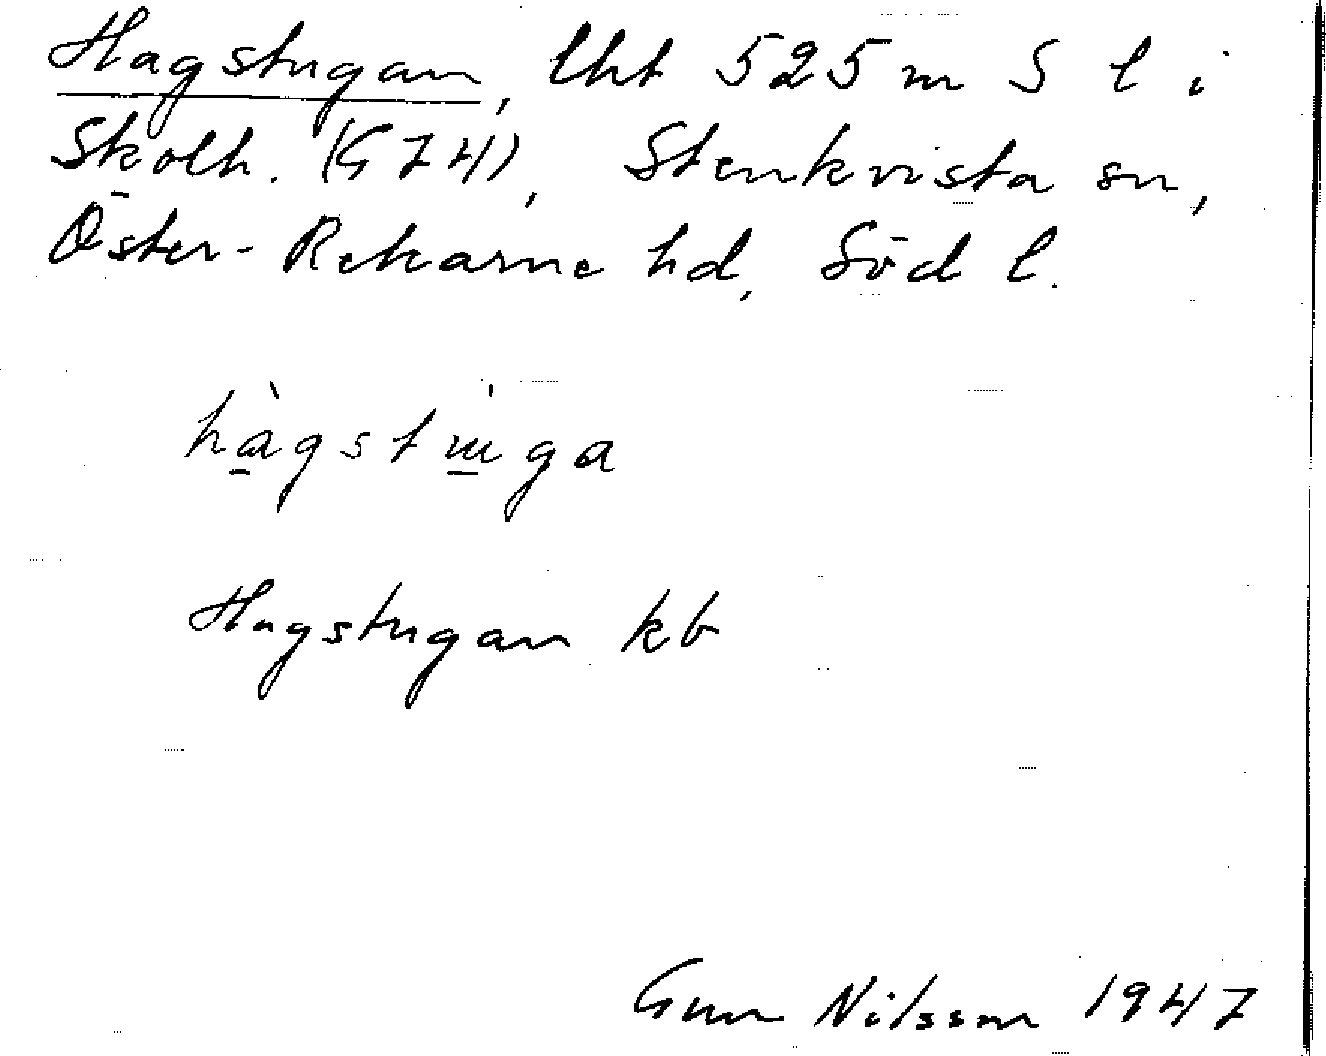 Hagstugan, lht 525 m S l i
Skolh. (G 74), Stenkvista sn,
Öster-Rekarne hd, Söd l.
hàgstùga
Hagstugan kb
Gun Nilsson 1947